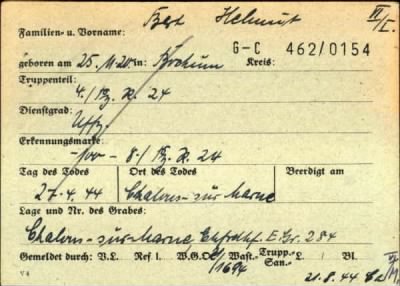 VI/I.
Familien- u. Vorname: Helmut
G-C 462/0154
geboren am 25.11.20 in: Bochum Kreis:
Truppenteil:
4./Pz. R. 24
Dienstgrad:
Uffz.
Erkennungsmarke:
-100- 8./Pz. R. 24
Tag des Todes Ort des Todes Beerdigt am
27.4.44 Chalons-sur-Marne
Lage und Nr. des Grabes:
Chalons-sur-Marne, E. Gr. 284
Gemeldet durch: V.L. Ref I. W.G.O. Wast.- Trupp.- San.- L. Bl.
1694
21.8.44